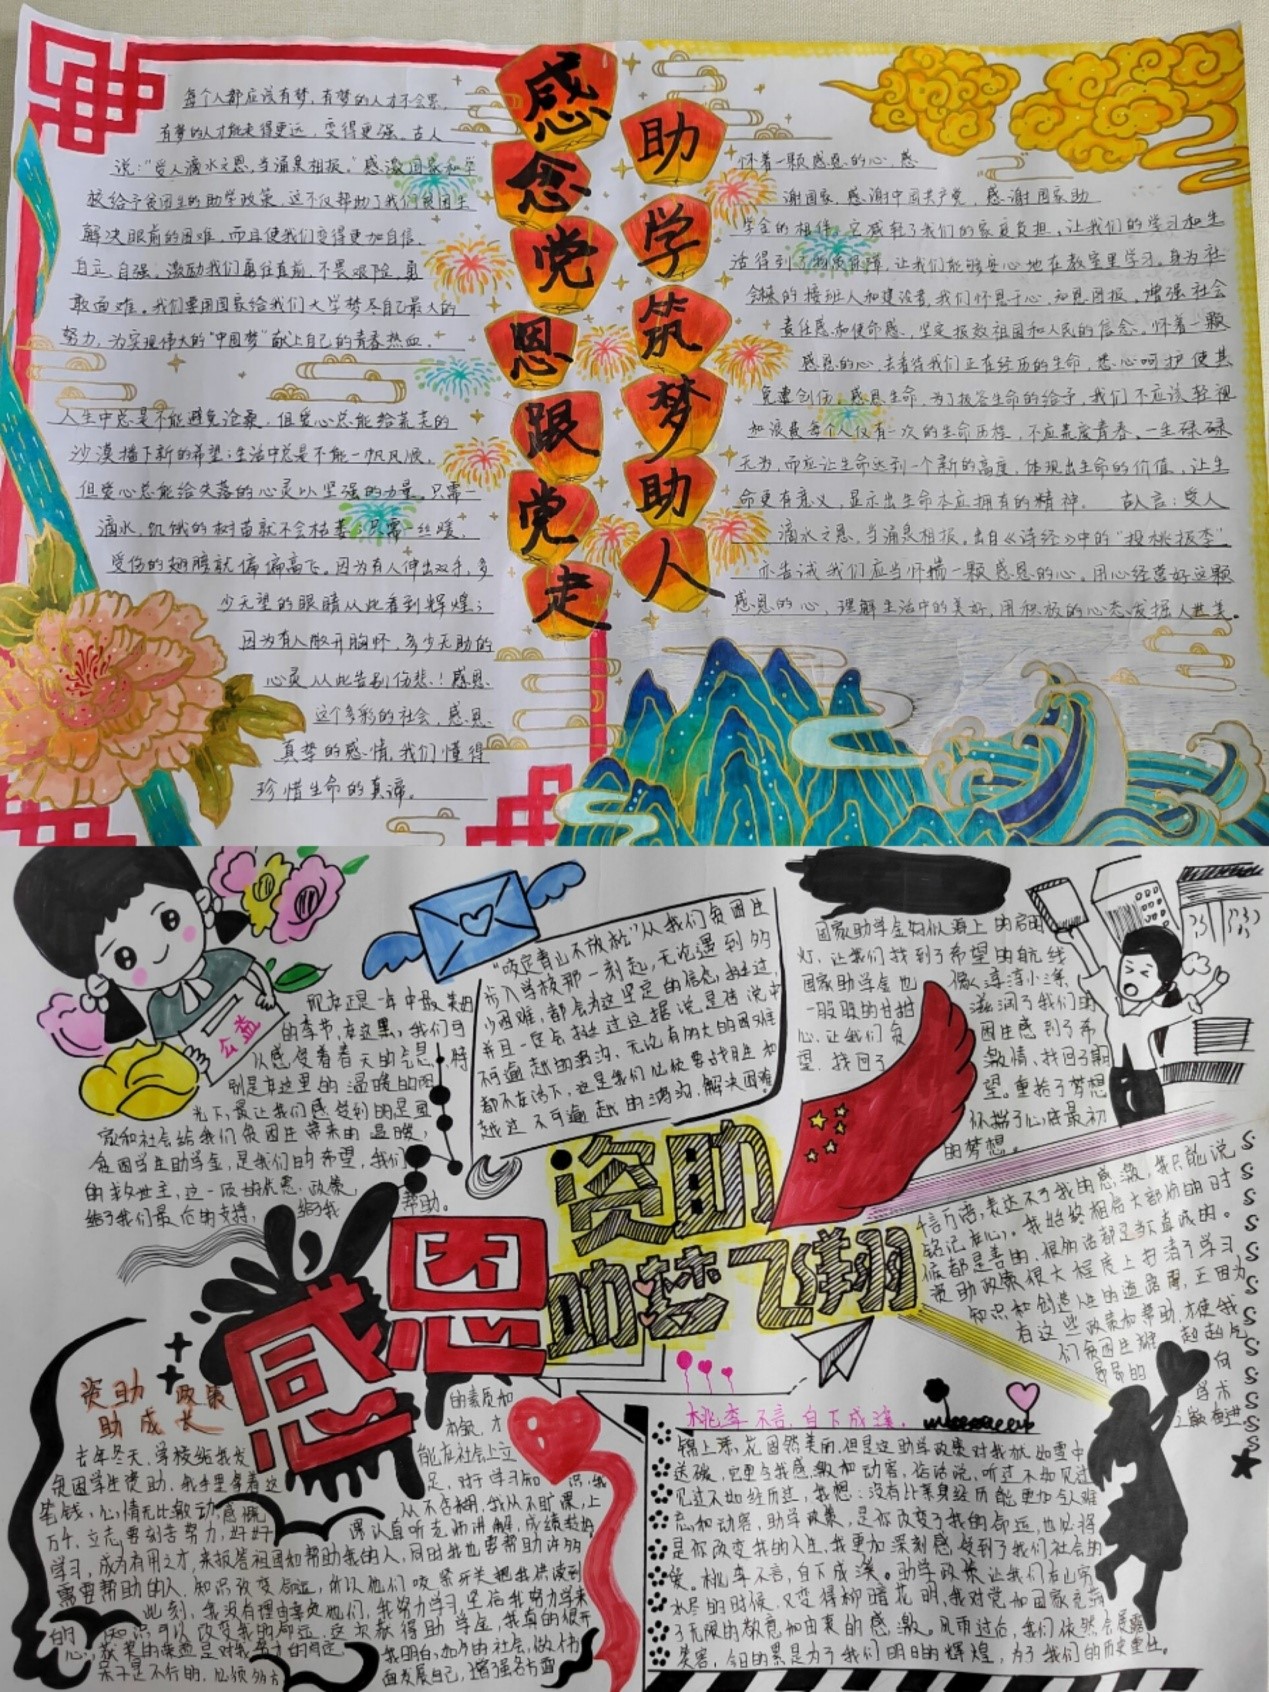 感念党恩跟党走
助学筑梦助人
每个人都应该有梦，有梦的人才不会累。
有梦的人才能走得更远，变得更强。古人
说："受人滴水之恩，当涌泉相报。"感激国家和学
校给予贫困生的助学政策，这不仅帮助了我们贫困生
解决眼前的困难，而且使我们变得更加自信，
自立，自强。激励我们勇往直前，不畏艰险，勇
敢面难。我们要用国家给我们大学梦尽自己最大的
努力，为实现伟大的"中国梦"献上自己的青春热血。
人生中总是不能避免沧桑，但爱心总能给荒芜的
沙漠播下新的希望；生活中总是不能一帆风顺，
但爱心总能给失落的心灵以坚强的力量。只需一
滴水，饥饿的树苗就不会枯萎；只需一丝暖，
受伤的翅膀就偏偏高飞。因为有人伸出双手，多
少无望的眼睛从此看到辉煌；
因为有人敞开胸怀，多少无助的
心灵从此告别伤悲！感恩
这个多彩的社会，感恩
真挚的感情，我们懂得
珍惜生命的真谛。
怀着一颗感恩的心，感
谢国家，感谢中国共产党，感谢国家助
学金的相伴，它减轻了我们的家庭负担，让我们的学习和生
活得到了物质保障，让我们能够安心地在教室里学习。身为社
会未来的接班人和建设者，我们怀恩于心，知恩图报，增强社会
责任感和使命感，坚定报效祖国和人民的信念。怀着一颗
感恩的心，去看待我们正在经历的生命，悉心呵护使其
免遭创伤，感恩生命，为了报答生命的给予，我们不应该轻视
和浪费每个人仅有一次的生命历程，不应荒废青春，一生碌碌
无为，而应让生命达到一个新的高度，体现出生命的价值，让生
命更有意义，显示出生命本应拥有的精神。古人言：受人
滴水之恩，当涌泉相报。出自《诗经》中的"投桃报李"
亦告诫我们应当怀揣一颗感恩的心。用心经营好这颗
感恩的心，理解生活中的美好，用积极的心态发掘人世美。
公益
现在正是一年中最美的
的季节，在这里，我们可
以感受着春天的气息，特
别是在这里的温暖的阳
光下，最让我们感受到的是国
家和社会给我们贫困生带来的温暖，
贫困学生助学金，是我们的希望，我们
的救世主，这一政的优惠，政策
给了我们最后的支持，给了我帮助。
"咬定青山不放松"从我们贫困生
步入学校那一刻起，无论遇到多
少困难，都会为这坚定的信念，挺过，
并且一定会挺过这据说是传说中
不可逾越的鸿沟，无论有多大的困难
都不在话下，这是我们必须要战胜和
越过不可逾越的鸿沟，解决困难
国家助学金和似海上的启明
灯，让我们找到了希望的航线
国家助学金也像人淳淳小溪
一股股的甘甜滋润了我们的
心，让我们贫困生感到了希
望，找回了激情，找回了期
望。重拾了梦想
怀揣了心底最初
的梦想。
资助
助梦飞翔
感恩
千言万语，表达不了我的感激，我只能说
铭记在心，我始终相信大部份的时
候都是善的，很多话都是当下真诚的。
资助政策很大程度上打清了学习
知识和创造人生的道路里，正因为
有这些政策和帮助，才使我
们贫困生雄赳赳气
昂昂的向
学术
之巅奋进
资助政策
助成长
去年冬天，学校给我发
贫困学生资助，我手里拿着这
笔钱，心情无比激动，感慨
万千，立志要刻苦努力，好好
学习，成为有用之才，来报答祖国和帮助我的人，同时我也要帮助许多
需要帮助的人，知识改变命运，所以他们咬紧牙关把我供读到
此刻，我没有理由辜负他们，我努力学习坚信我努力学来
的知识可以改变我的命运，这次获得助学金，我真的很开
心，获奖的荣誉是对我努力的肯定，我明白，如今的社会，做书
呆子是不行的，必须多方面发展自己，增强各方面
的素质和
本领，才
能在社会上立
足，对于学习知识，我
从不含糊，我从不旷课，上
课认真听老师讲解，成绩较好
桃李不言，自下成溪。
锦上添花固然美丽，但是这助学政策对我就如雪中
送碳，它更令我感激和动容，俗话说，听过不如见过
见过不如经历过，我想：没有比亲身经历能更加令人难
忘和动容，助学政策，是你改变了我的命运，也必将
是你改变我的人生，我更加深刻感受到了我们社会的
爱。桃李不言，自下成溪。助学政策让我们在山穷
水尽的时候，又变得柳暗花明，我对党和国家充满
了无限的敬意和由衷的感激。风雨过后，我们依然会展露
笑容，今日的累是为了我们明日的辉煌，为了我们的历史重任。